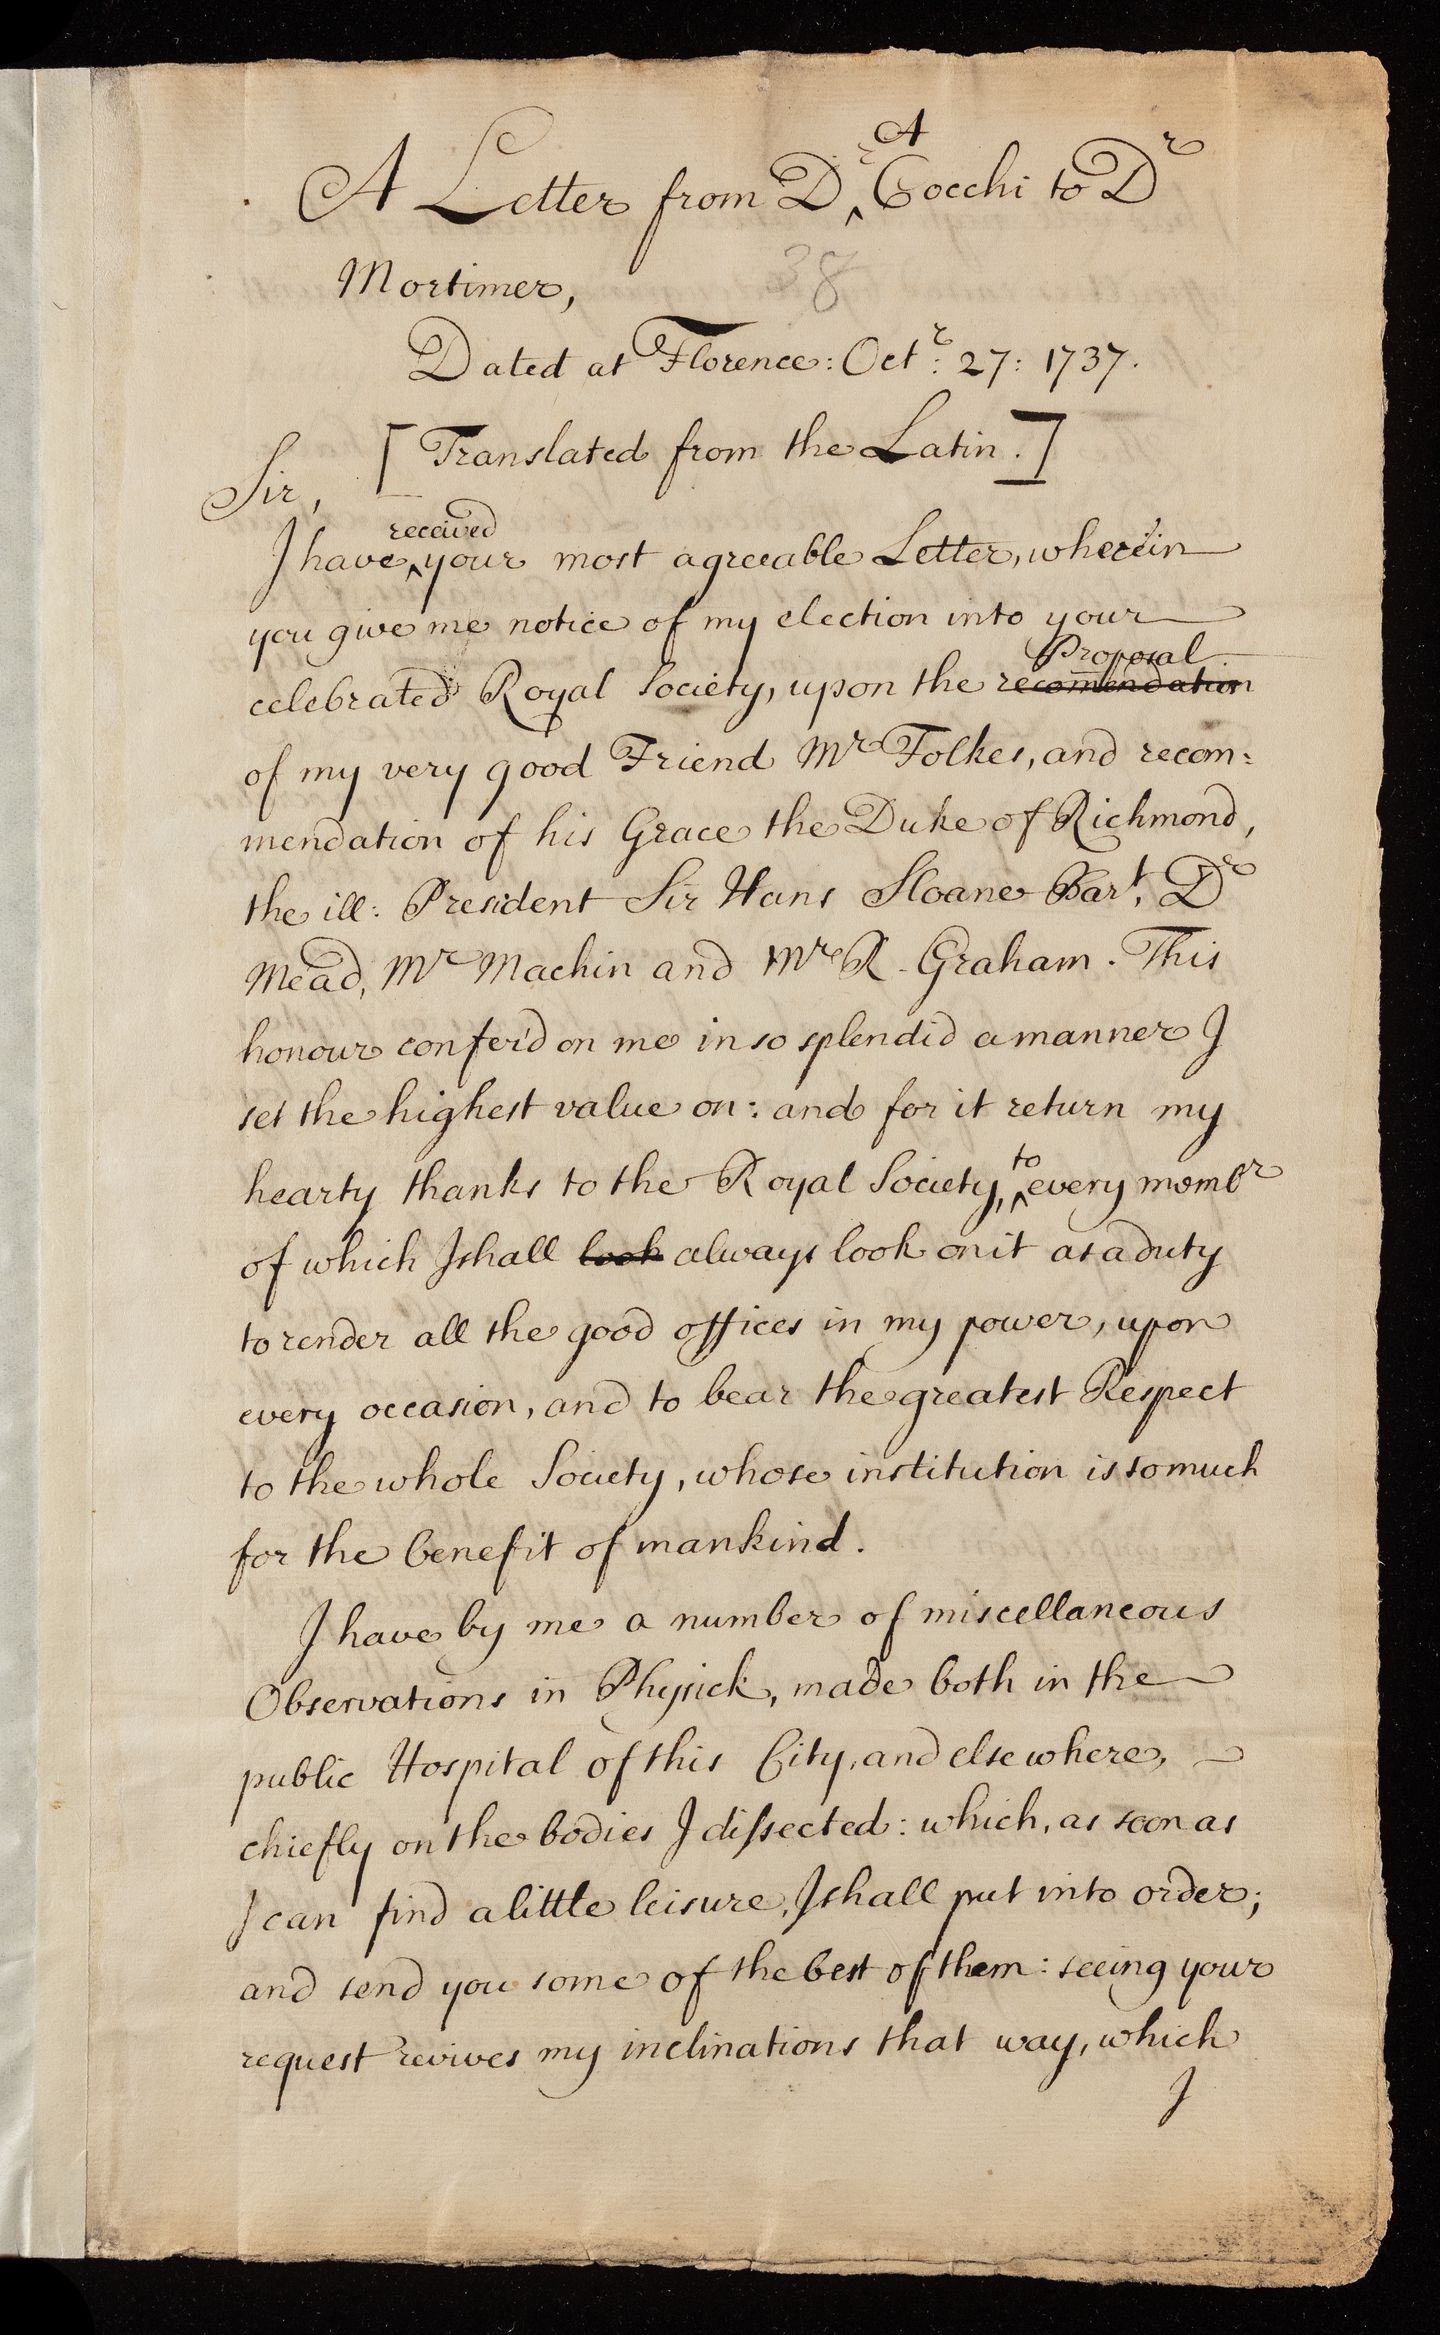 A Letter from Dr A Cocchi to Dr
Mortimer,
38
Dated at Florence: Octr: 27: 1737.
[Translated from the Latin.]
Sir,
I have received your most agreeable Letter, wherein
you give me notice of my election into your
celebrated Royal Society, upon the recomendation Proposal
of my very good Friend Mr Folkes, and recom:
mendation of his Grace the Duke of Richmond,
the ill: President Sir Hans Sloane Bart, Dr
Mead, Mr Machin and Mr R. Graham. This
honour confer'd on me in so splendid a manner I
set the highest value on: and for it return my
hearty thanks to the Royal Society, to every membr
of which I shall look always look on it as a duty
to render all the good offices in my power, upon
every occasion, and to bear the greatest Respect
to the whole Society, whose institution is so much
for the benefit of mankind.
I have by me a number of miscellaneous
Observations in Physick, made both in the
public Hospital of this City, and elsewhere,
chiefly on the bodies I dissected: which, as soon as
I can find a little leisure, I shall put into order;
and send you some of the best of them: seeing your
request revives my inclinations that way, which
I